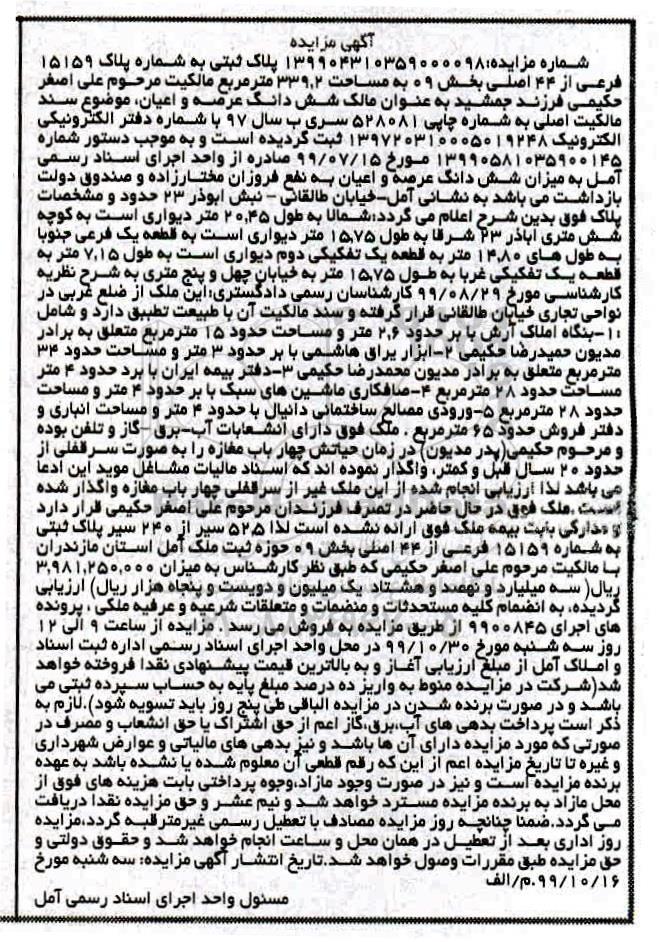 آگهی مزایده
شماره مزایده:۱۳۹۹۰۴۳۱۰۳۵۹۰۰۰۰۹۸ پلاک ثبتی به شماره پلاک ۱۵۱۵۹
فرعی از ۴۴ اصلی بخش ۰۹ به مساحت ۳۳۹,۲ مترمربع مالکیت مرحوم علی اصغر
حکیمی فرزند جمشید به عنوان مالک شش دانگ عرصه و اعیان، موضوع سند
مالکیت اصلی به شماره چاپی ۵۲۸۰۸۱ سری ب سال ۹۷ با شماره دفتر الکترونیکی
الکترونیک ۱۳۹۷۲۰۳۱۰۰۰۵۰۱۹۲۴۸ ثبت گردیده است و به موجب دستور شماره
۱۳۹۹۰۵۸۱۰۳۵۹۰۰۱۴۵ مورخ ۹۹/۰۷/۱۵ صادره از واحد اجرای اسناد رسمی
آمل به میزان شش دانگ عرصه و اعیان به نفع فروزان مختارزاده و صندوق دولت
بازداشت می باشد به نشانی آمل-خیابان طالقانی - نبش ابوذر ۲۳ حدود و مشخصات
پلاک فوق بدین شرح اعلام می گردد:شمالا به طول ۲۰,۴۵ متر دیواری است به کوچه
شش متری اباذر ۲۳ شرقا به طول ۱۵,۷۵ متر دیواری است به قطعه یک فرعی جنوبا
به طول های ۱۴,۸۰ متر به قطعه یک تفکیکی دوم دیواری است به طول ۷,۱۵ متر به
قطعه یک تفکیکی غربا به طول ۱۵,۷۵ متر به خیابان چهل و پنج متری به شرح نظریه
کارشناسی مورخ ۹۹/۰۸/۲۹ کارشناسان رسمی دادگستری:این ملک از ضلع غربی در
نواحی تجاری خیابان طالقانی قرار گرفته و سند مالکیت آن با طبیعت تطبیق دارد و شامل
:۱-بنگاه املاک آرش با بر حدود ۲,۶ متر و مساحت حدود ۱۵ مترمربع متعلق به برادر
مدیون حمیدرضا حکیمی ۲-ابزار یراق هاشمی با بر حدود ۳ متر و مساحت حدود ۳۴
مترمربع متعلق به برادر مدیون محمدرضا حکیمی ۳-دفتر بیمه ایران با برد حدود ۴ متر
مساحت حدود ۲۸ مترمربع ۴-صافکاری ماشین های سبک با بر حدود ۴ متر و مساحت
حدود ۲۸ مترمربع ۵-ورودی مصالح ساختمانی دانیال با حدود ۴ متر و مساحت انباری و
دفتر فروش حدود ۶۵ مترمربع . ملک فوق دارای انشعابات آب-برق -گاز و تلفن بوده
و مرحوم حکیمی(پدر مدیون) در زمان حیاتش چهار باب مغازه را به صورت سرقفلی از
حدود ۲۰ سال قبل و کمتر، واگذار نموده اند که اسناد مالیات مشاغل موید این ادعا
می باشد لذا ارزیابی انجام شده از این ملک غیر از سرقفلی چهار باب مغازه واگذار شده
است .ملک فوق در حال حاضر در تصرف فرزندان مرحوم علی اصغر حکیمی قرار دارد
و مدارکی بابت بیمه ملک فوق ارائه نشده است لذا ۵۲,۵ سیر از ۲۴۰ سیر پلاک ثبتی
به شماره ۱۵۱۵۹ فرعی از ۴۴ اصلی بخش ۰۹ حوزه ثبت ملک آمل استان مازندران
با مالکیت مرحوم علی اصغر حکیمی که طبق نظر کارشناس به میزان ۳,۹۸۱,۲۵۰,۰۰۰
ریال( سه میلیارد و نهصد و هشتاد یک میلیون و دویست و پنجاه هزار ریال) ارزیابی
گردیده، به انضمام کلیه مستحدثات و منضمات و متعلقات شرعیه و عرفیه ملکی ، پرونده
های اجرای ۹۹۰۰۸۴۵ از طریق مزایده به فروش می رسد . مزایده از ساعت ۹ الی ۱۲
روز سه شنبه مورخ ۹۹/۱۰/۳۰ در محل واحد اجرای اسناد رسمی اداره ثبت اسناد
و املاک آمل از مبلغ ارزیابی آغاز و به بالاترین قیمت پیشنهادی نقدا فروخته خواهد
شد(شرکت در مزایده منوط به واریز ده درصد مبلغ پایه به حساب سپرده ثبتی می
باشد و در صورت برنده شدن در مزایده الباقی طی پنج روز باید تسویه شود).لازم به
ذکر است پرداخت بدهی های آب،برق،گاز اعم از حق اشتراک یا حق انشعاب و مصرف در
صورتی که مورد مزایده دارای آن ها باشد و نیز بدهی های مالیاتی و عوارض شهرداری
و غیره تا تاریخ مزایده اعم از این که رقم قطعی آن معلوم شده یا نشده باشد به عهده
برنده مزایده است و نیز در صورت وجود مازاد،وجوه پرداختی بابت هزینه های فوق از
محل مازاد به برنده مزایده مسترد خواهد شد و نیم عشر و حق مزایده نقدا دریافت
می گردد.ضمنا چنانچه روز مزایده مصادف با تعطیل رسمی غیرمترقبه گردد،مزایده
روز اداری بعد از تعطیل در همان محل و ساعت انجام خواهد شد و حقوق دولتی و
حق مزایده طبق مقررات وصول خواهد شد.تاریخ انتشار آگهی مزایده: سه شنبه مورخ
۹۹/۱۰/۱۶.م/الف
مسئول واحد اجرای اسناد رسمی آمل